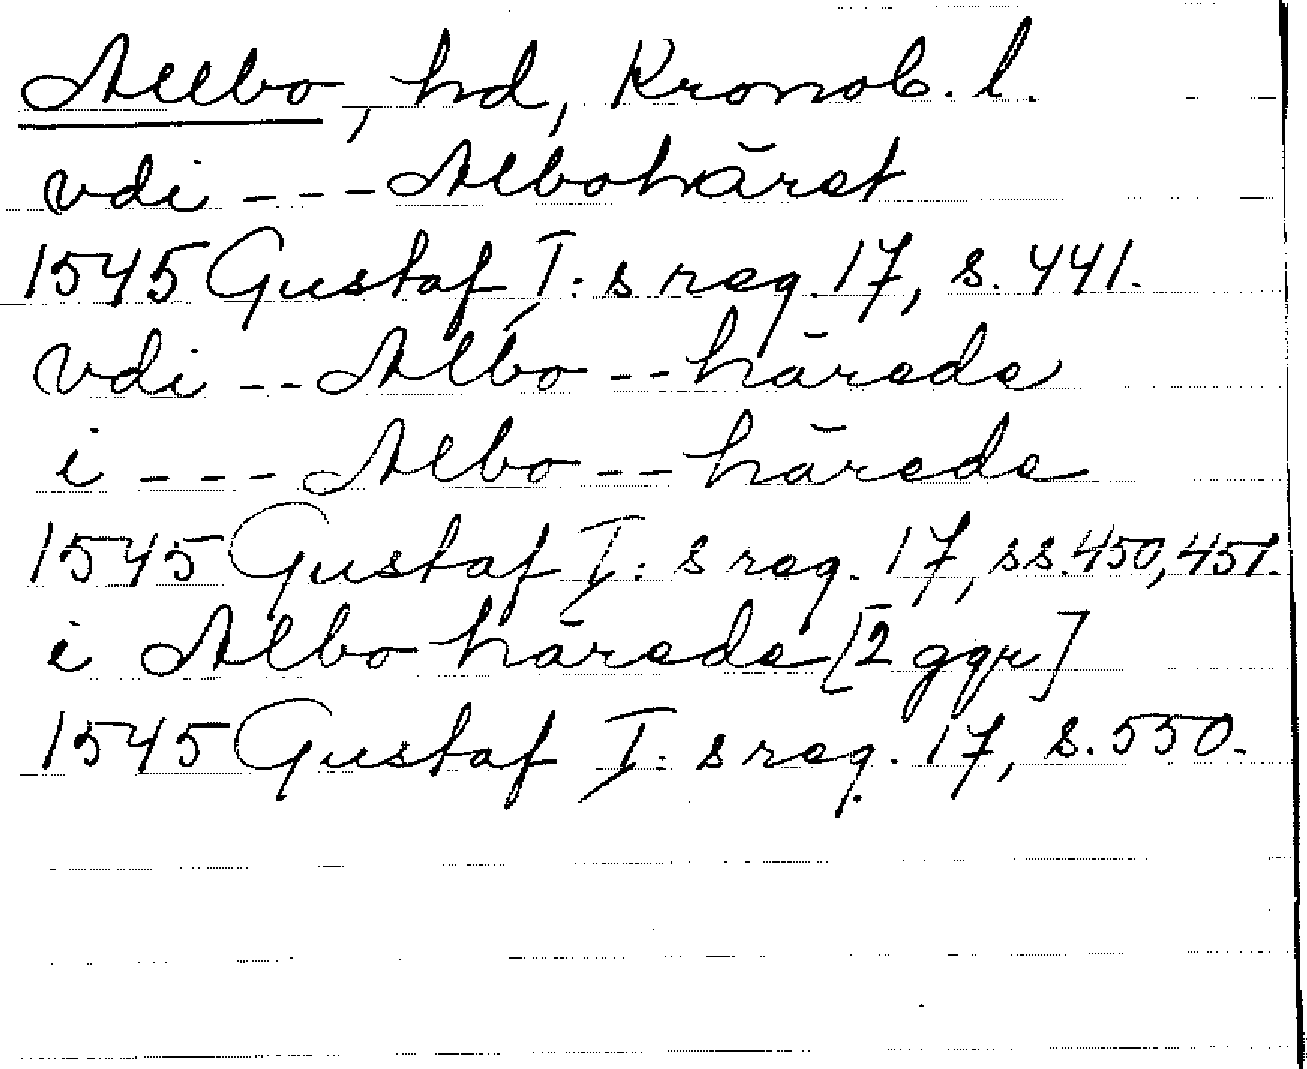 Allbo, hd, Kronob. l.
vdi --- Albohäret
1545 Gustaf I:s reg. 17, s. 441.
vdi -- Albo -- härede
i --- Albo -- härede
1545 Gustaf I:s reg. 17, ss. 450, 451.
i Albo härede [2 ggr]
1545 Gustaf I:s reg. 17, s. 550.